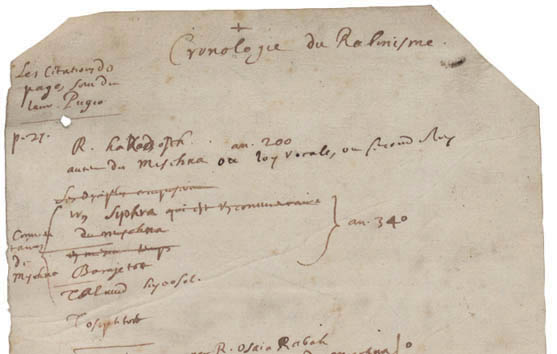 +
Cronologie du Rabinisme.
Les Citations des
pages sont du
livre Pugio
p. 27. R. hakadosch an. 200
auteur du Mischna ou loy vocale, ou second loy
Les
un Siphra qui est un commentaire
du mischna
an. 340
Commen
taires
du
Mischna
Barajetot
Talmud hyerosol.
Tosiphtot
R. Osaia Rabah